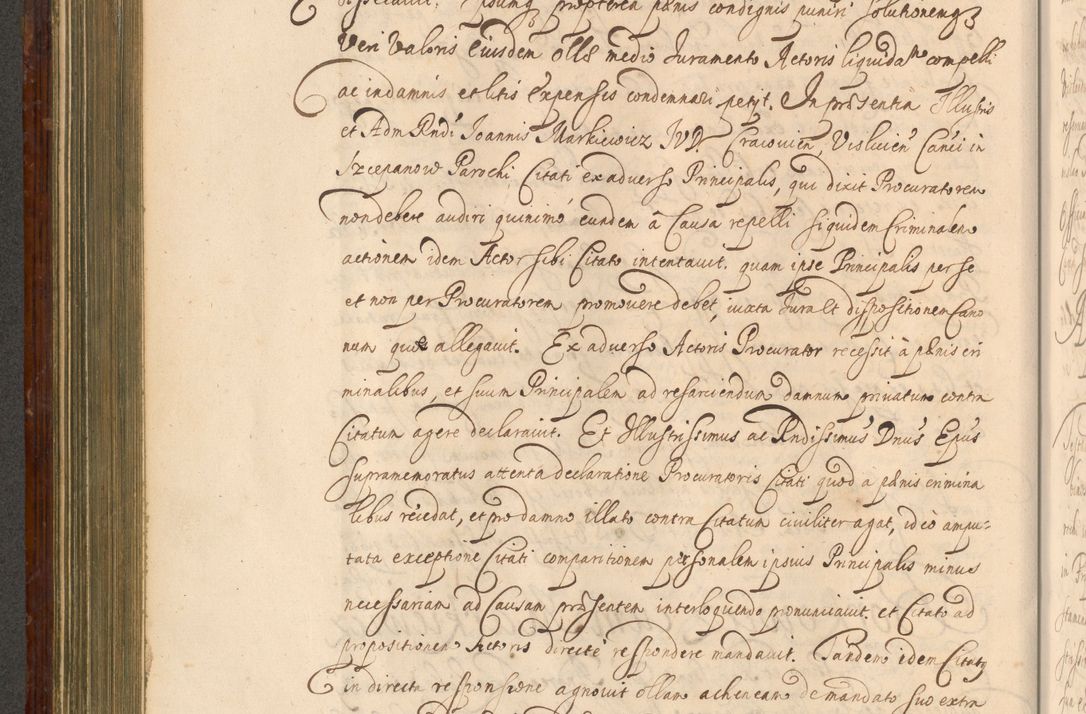 Ipsumq propterea pænis condignis puniri solutionemq3
Veri Valoris Eiusdem Ollæ medio Juramento Actoris liquidam compelli
ac indamnis et litis expensis condemnari petijt. In præsentia Illustris
et Adm Rndi Joannis Markiewicz JVD. Cracovien, Vislicien Canci in
Szczepanow Parochi, Citati ex adverso Principalis, qui dixit Procuratorem
non debere audiri quinimo eundem à Causa repelli siquidem Criminalem
actionem idem Actor sibi Citato intentavit. quam ipse Principalis per se
et non per Procuratorem promovere debet, iuxta Jura et dispositionem Cano
num quæ allegavit. Ex adverso Actoris Procurator recessit à pænis cri
minalibus, et suum Principalem ad resarciendum damnum privatum contra
Citatum agere declaravit. Et Illustrissimus ac Rndissimus Dnus Epus
supramemoratus attenta declaratione Procuratoris Citati quod à pænis crimina
libus recedat, et pro damno illato contra Citatum civiliter agat, ideo ampu-
tata exceptione Citati comparitionem personalem ipsius Principalis minus
necessariam ad Causam præsentem interloquendo pronunciavit. et Citato ad
propositionem Actoris directe respondere mandavit. Tandem idem Citatq
in directa responsione agnovit ollam acheneam de mandato suo extra